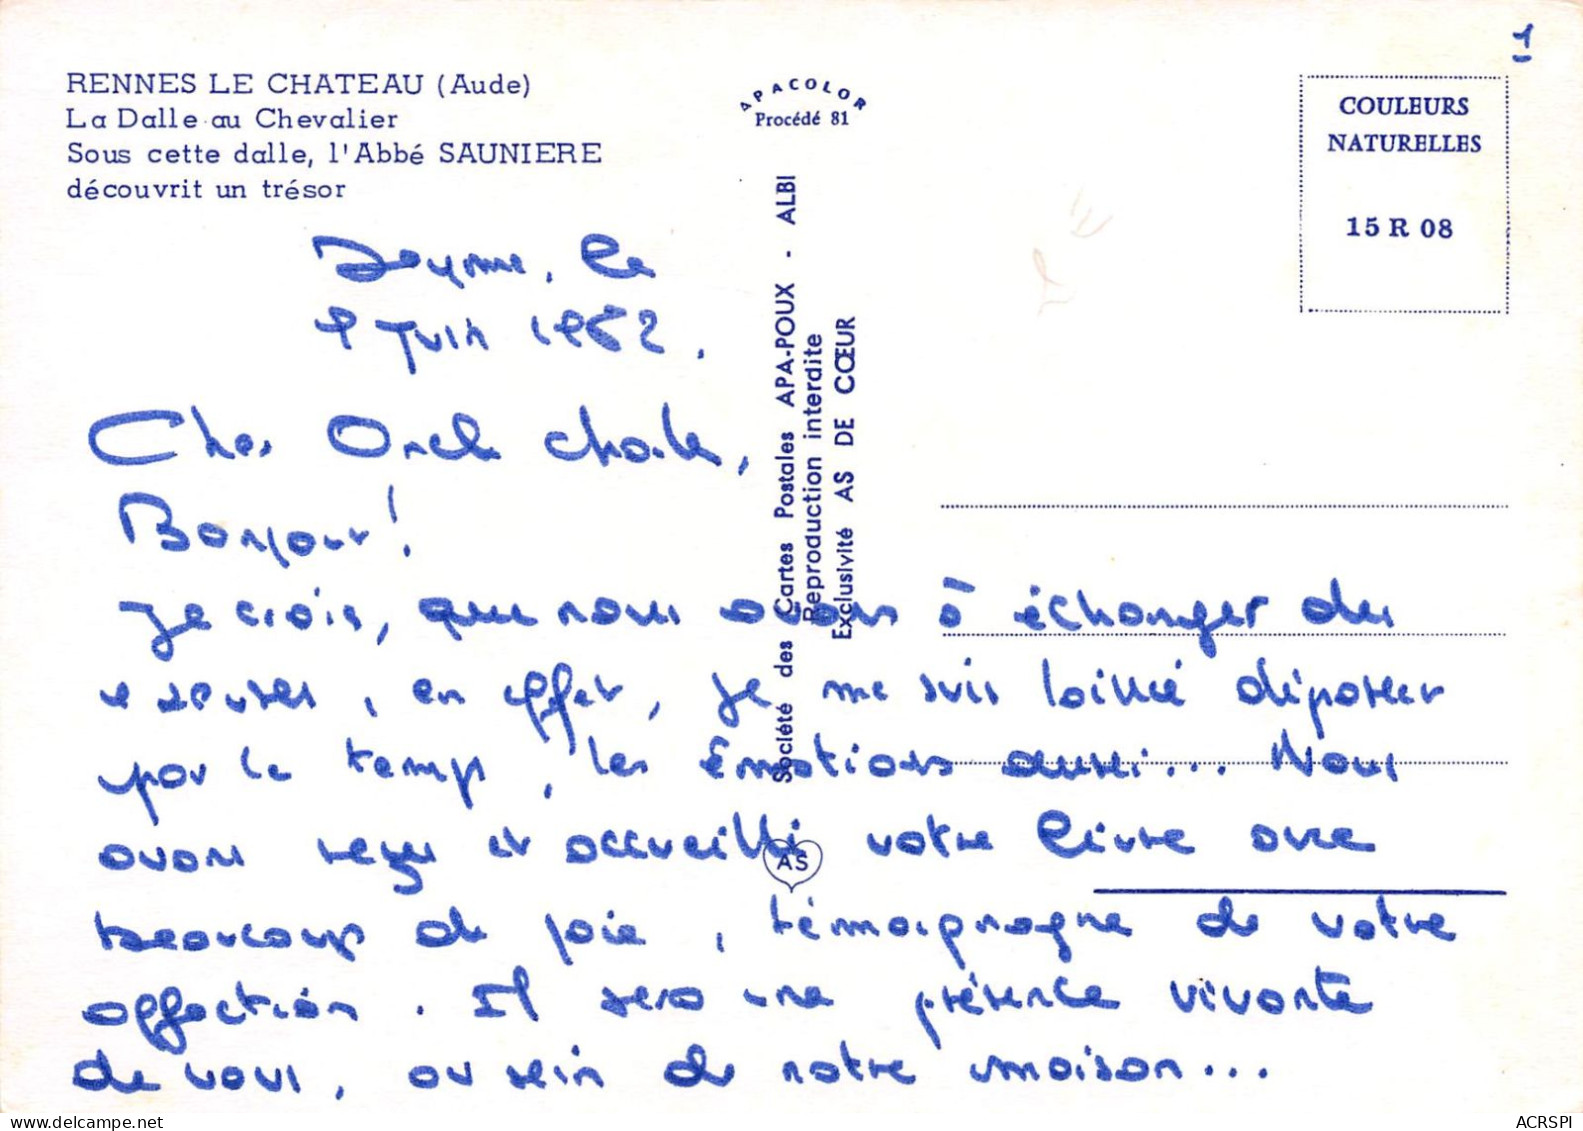 1
RENNES LE CHATEAU (Aude)
La Dalle au Chevalier
Sous cette dalle, l'Abbé SAUNIERE
découvrit un trésor
APACOLOR
Procédé 81
COULEURS
NATURELLES
15 R 08
Société des Cartes Postales APA-POUX - ALBI
Reproduction interdite
Exclusivité AS DE CŒUR
AS
le
Juin 1982.
Cher Oncle Charles,
Bonjour!
Je crois, que nous avons à échanger des
excuses, en effet, je me suis laissé dépasser
par le temps, les émotions aussi... Nous
avons reçu et accueilli votre livre avec
beaucoup de joie, témoignage de votre
affection. Il sera une présence vivante
de vous, au sein de notre maison...
ACRSPI